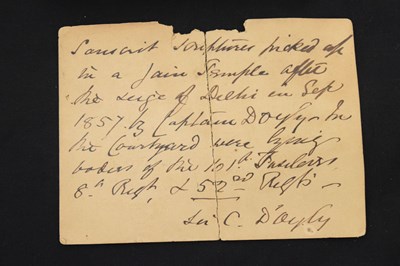 Sanscrit Scriptures picked up
in a Jain Temple after
the siege of Delhi in Sep
1857. by Captain D'Oyly. In
the Courtyard were lying
bodies of the 101st Fusileers
8th Regt, & 52nd Regts -
Sir C. D'Oyly